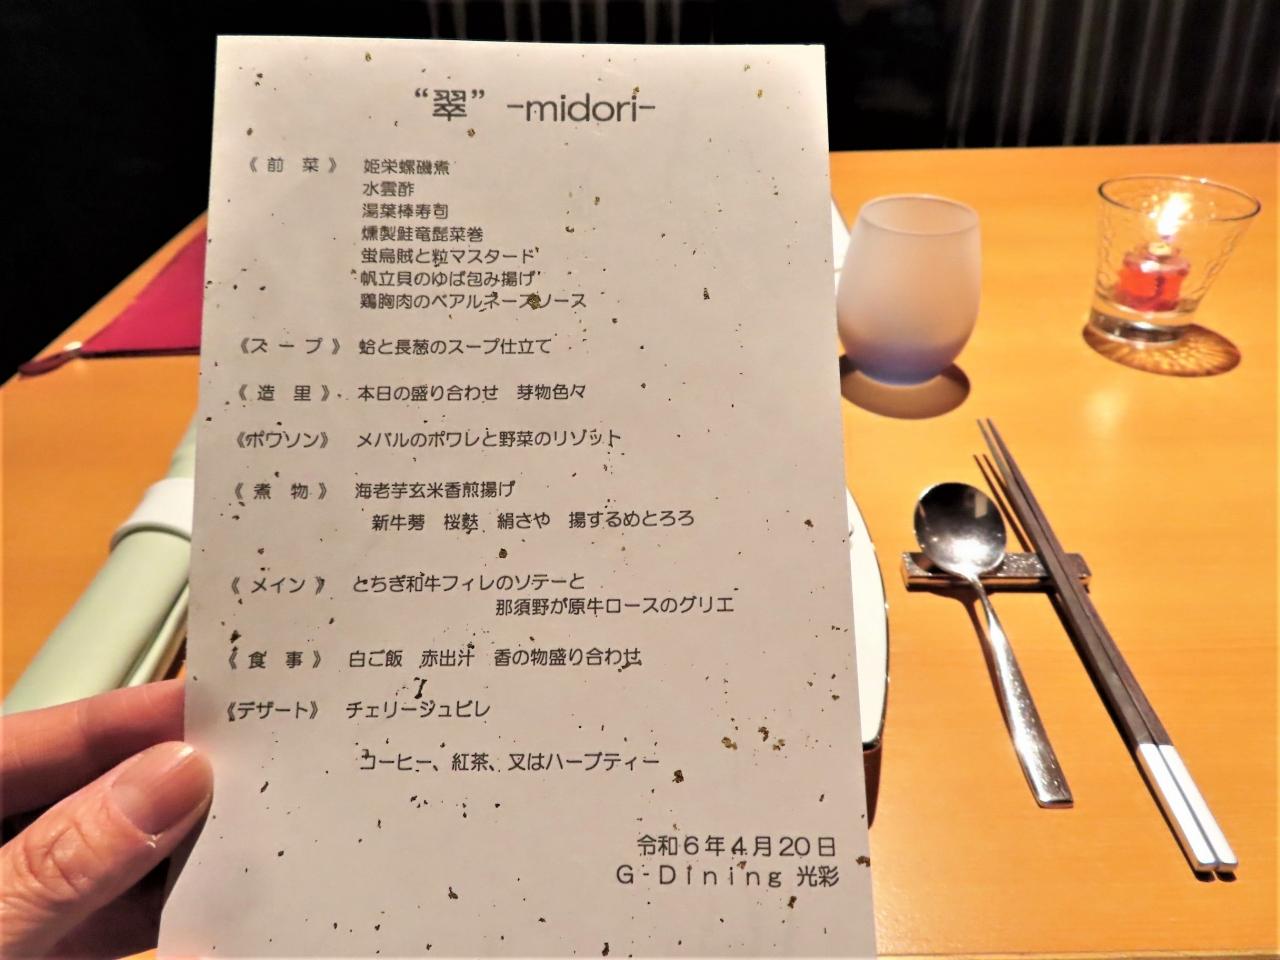 “翠” -midori-
《前 菜》 姫栄螺磯煮
水雲酢
湯葉棒寿司
燻製鮭竜髭菜巻
蛍烏賊と粒マスタード
帆立貝のゆば包み揚げ
鶏胸肉のベアルネーズソース
《スープ》 蛤と長葱のスープ仕立て
《造 里》 本日の盛り合わせ 芽物色々
《ポワソン》 メバルのポワレと野菜のリゾット
《煮 物》 海老芋玄米香煎揚げ
新牛蒡 桜麩 絹さや 揚するめとろろ
《メイン》 とちぎ和牛フィレのソテーと
那須野が原牛ロースのグリエ
《食 事》 白ご飯 赤出汁 香の物盛り合わせ
《デザート》 チェリージュビレ
コーヒー、紅茶、又はハーブティー
令和6年4月20日
G-Dining 光彩